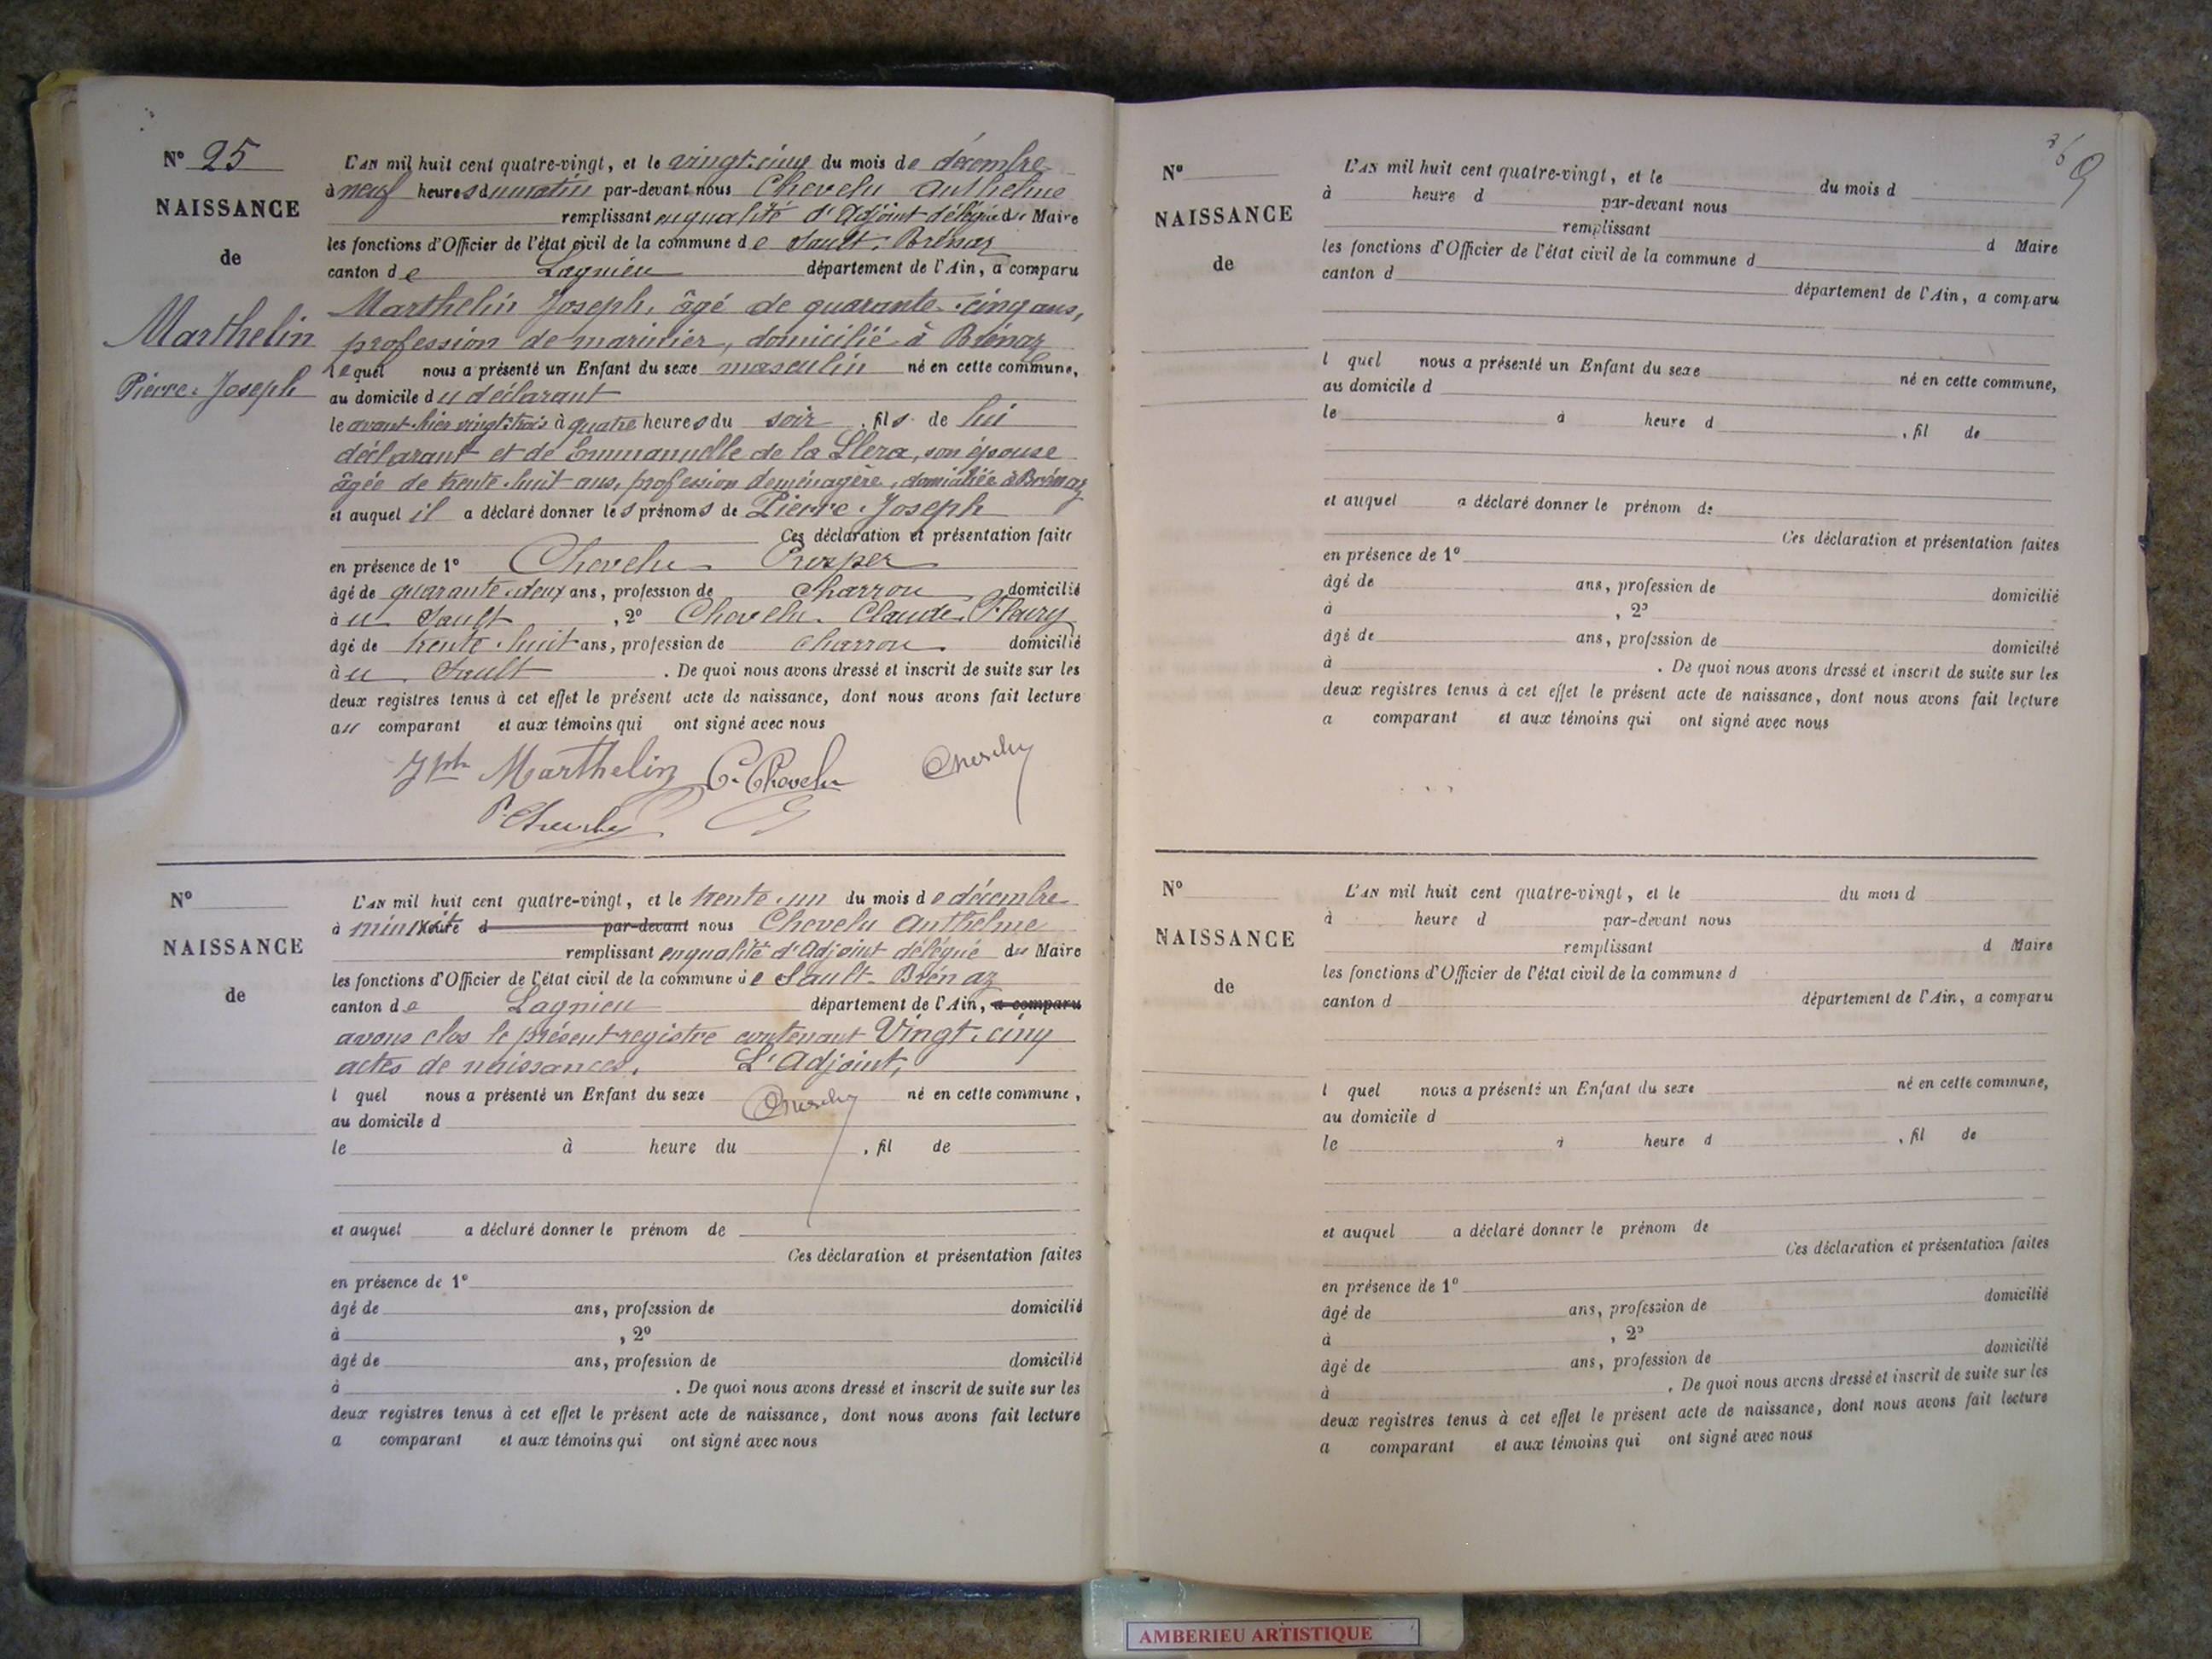 N° 25
NAISSANCE
de
Marthelin
Pierre-Joseph
L'AN mil huit cent quatre-vingt, et le vingt-cinq du mois de décembre
à neuf heures du matin par-devant nous Chevelu Anthelme
remplissant en qualité d'Adjoint délégué du Maire
les fonctions d'Officier de l'état civil de la commune de Sault-Brénaz
canton de Lagnieu département de l'Ain, a comparu
Marthelin Joseph, âgé de quarante-cinq ans,
profession de marinier, domicilié à Brénaz
Lequel nous a présenté un Enfant du sexe masculin né en cette commune,
au domicile du déclarant
le avant-hier vingt-trois à quatre heures du soir, fils de lui
déclarant et de Emmanuelle de la Llera, son épouse
âgée de trente-huit ans, profession de ménagère, domiciliée à Brénaz
et auquel il a déclaré donner les prénoms de Pierre-Joseph
Ces déclaration et présentation faite
en présence de 1° Chevelu Prosper
âgé de quarante-deux ans, profession de charron domicilié
à u Sault, 2° Chevelu Claude-Fleury
âgé de trente-huit ans, profession de charron domicilié
à u Sault. De quoi nous avons dressé et inscrit de suite sur les
deux registres tenus à cet effet le présent acte de naissance, dont nous avons fait lecture
au comparant et aux témoins qui ont signé avec nous
Jph Marthelin C. Chevelu Chevelu
P. Chevelu
N°
NAISSANCE
de
L'AN mil huit cent quatre-vingt, et le trente-un du mois de décembre
à minuit d par-devant nous Chevelu Anthelme
remplissant en qualité d'Adjoint délégué du Maire
les fonctions d'Officier de l'état civil de la commune de Sault-Brénaz
canton de Lagnieu département de l'Ain, a comparu
avons clos le présent registre contenant Vingt-cinq
actes de naissances. L'Adjoint,
l quel nous a présenté un Enfant du sexe Chevelu né en cette commune,
au domicile d
le à heure du , fil de
et auquel a déclaré donner le prénom de
Ces déclaration et présentation faites
en présence de 1°
âgé de ans, profession de domicilié
à , 2°
âgé de ans, profession de domicilié
à . De quoi nous avons dressé et inscrit de suite sur les
deux registres tenus à cet effet le présent acte de naissance, dont nous avons fait lecture
a comparant et aux témoins qui ont signé avec nous
N°
NAISSANCE
de
L'AN mil huit cent quatre-vingt, et le du mois d
à heure d par-devant nous
remplissant d Maire
les fonctions d'Officier de l'état civil de la commune d
canton d département de l'Ain, a comparu
l quel nous a présenté un Enfant du sexe né en cette commune,
au domicile d
le à heure d , fil de
et auquel a déclaré donner le prénom de
Ces déclaration et présentation faites
en présence de 1°
âgé de ans, profession de domicilié
à , 2°
âgé de ans, profession de domicilié
à . De quoi nous avons dressé et inscrit de suite sur les
deux registres tenus à cet effet le présent acte de naissance, dont nous avons fait lecture
a comparant et aux témoins qui ont signé avec nous
N°
NAISSANCE
de
L'AN mil huit cent quatre-vingt, et le du mois d
à heure d par-devant nous
remplissant d Maire
les fonctions d'Officier de l'état civil de la commune d
canton d département de l'Ain, a comparu
l quel nous a présenté un Enfant du sexe né en cette commune,
au domicile d
le à heure d , fil de
et auquel a déclaré donner le prénom de
Ces déclaration et présentation faites
en présence de 1°
âgé de ans, profession de domicilié
à , 2°
âgé de ans, profession de domicilié
à . De quoi nous avons dressé et inscrit de suite sur les
deux registres tenus à cet effet le présent acte de naissance, dont nous avons fait lecture
a comparant et aux témoins qui ont signé avec nous
AMBERIEU ARTISTIQUE